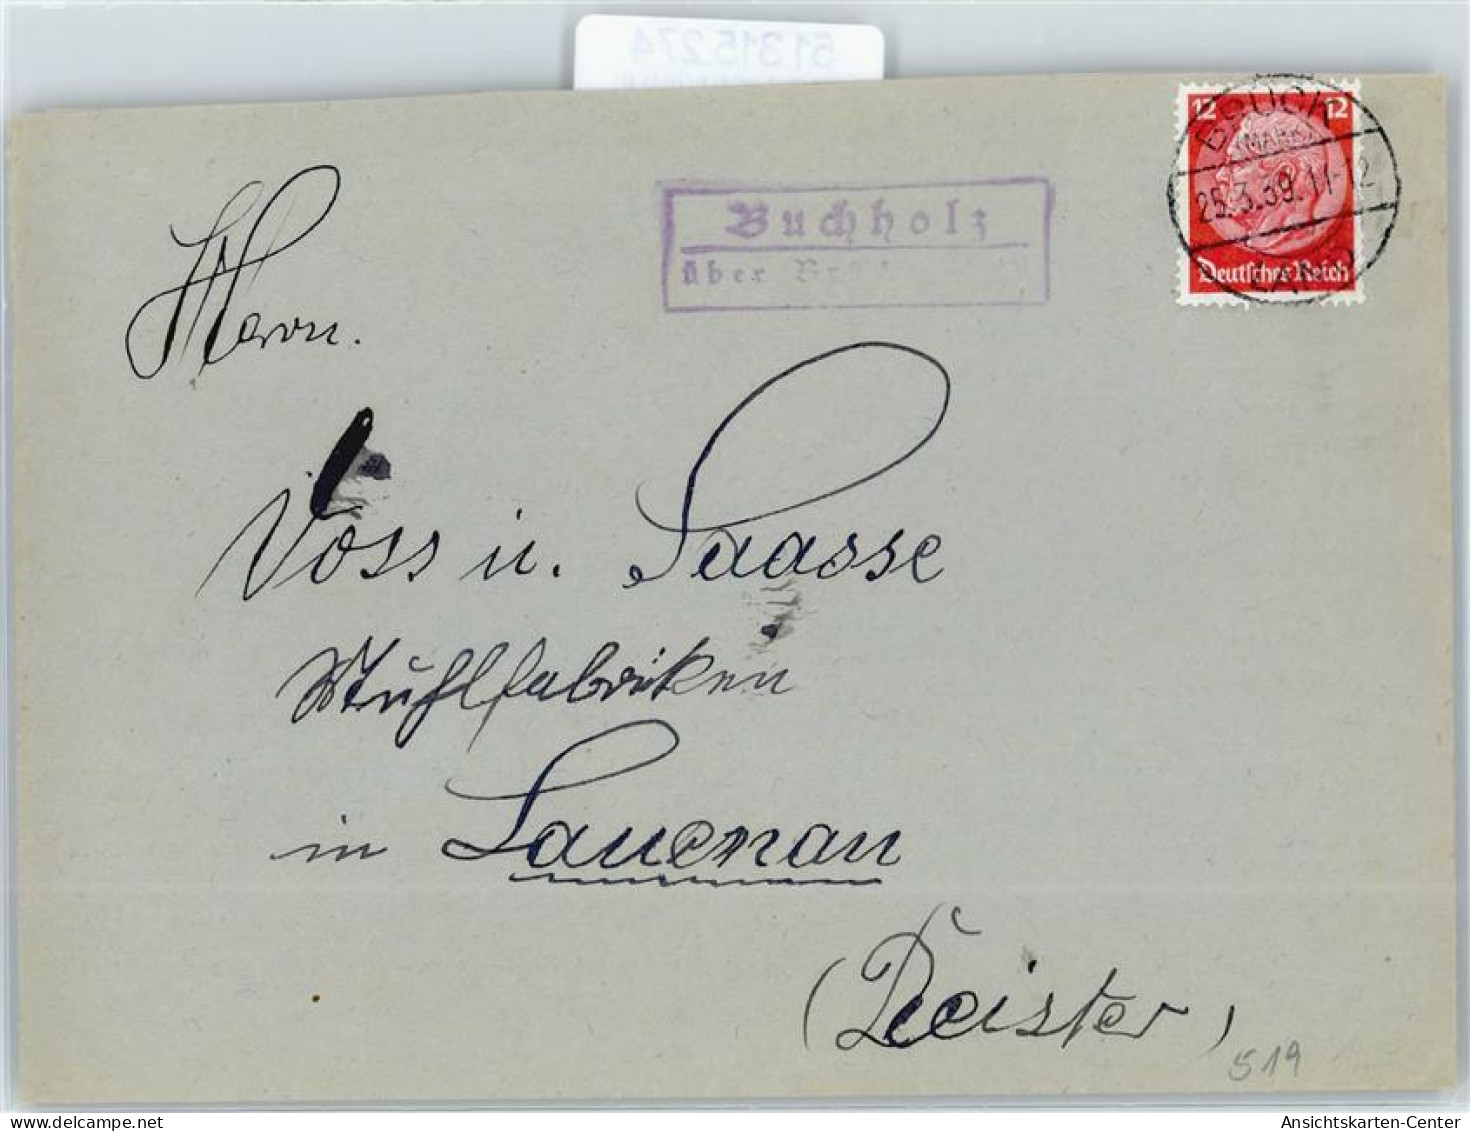 51315274
12 12
BRÜCK
(MARK)
25.3.39.11-12
LAND
Deutsches Reich
Buchholz
über
Herrn.
Voss u. Saasse
Stuhlfabriken
in Lauenau
(Deister)
519
Ansichtskarten-Center